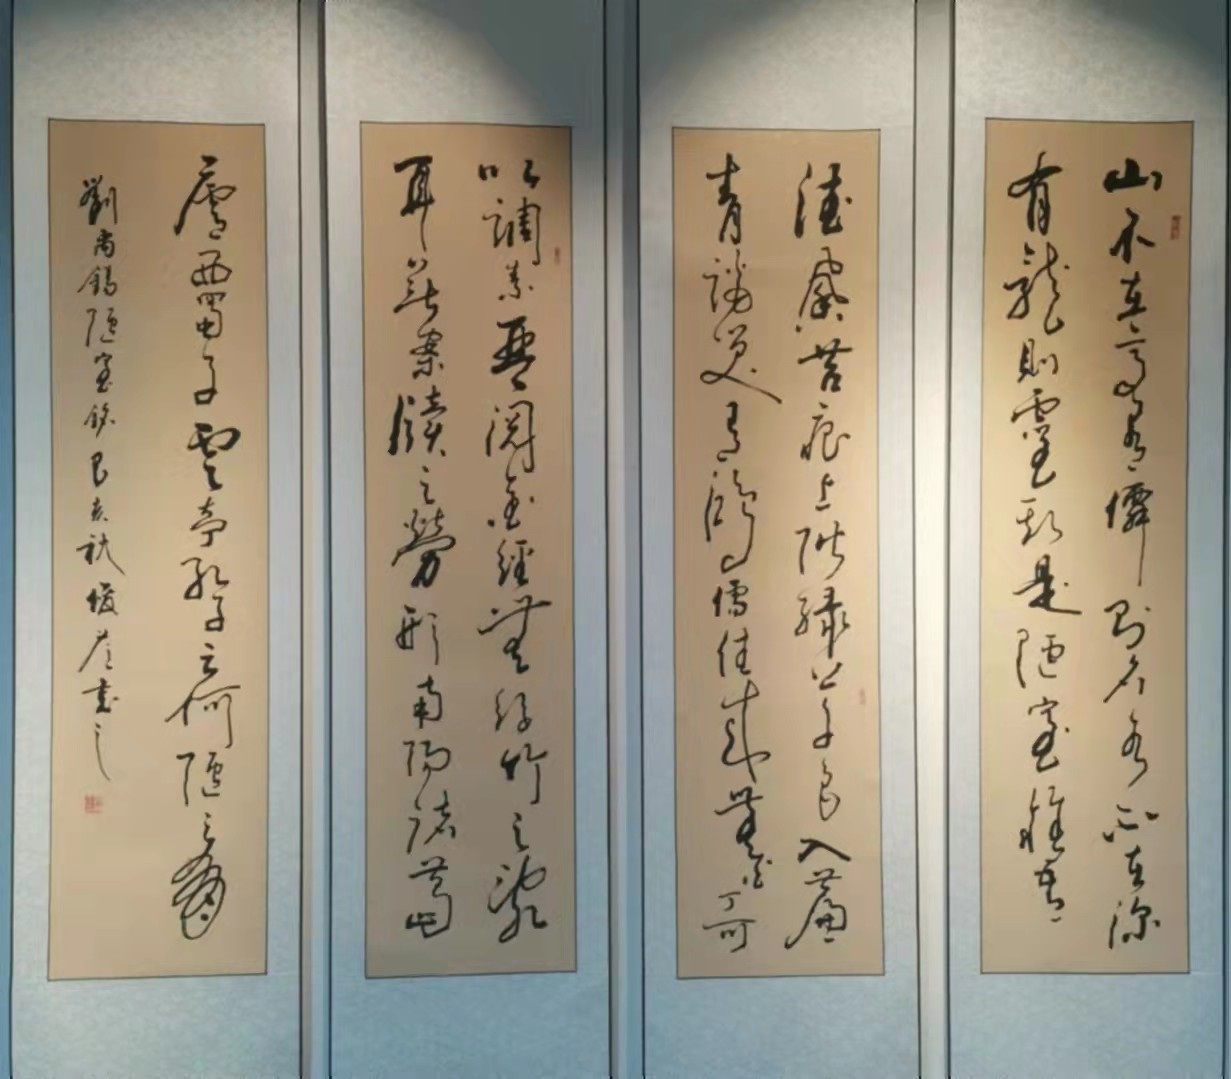 山不在高有僊則名水不在深
有龍則靈斯是陋室惟吾
德馨苔痕上階綠草色入簾
青談笑有鴻儒往來無白丁可
以調素琴閱金經無絲竹之亂
耳無案牘之勞形南陽諸葛
廬西蜀子雲亭孔子云何陋之有
劉禹錫陋室銘己亥秋俊書之